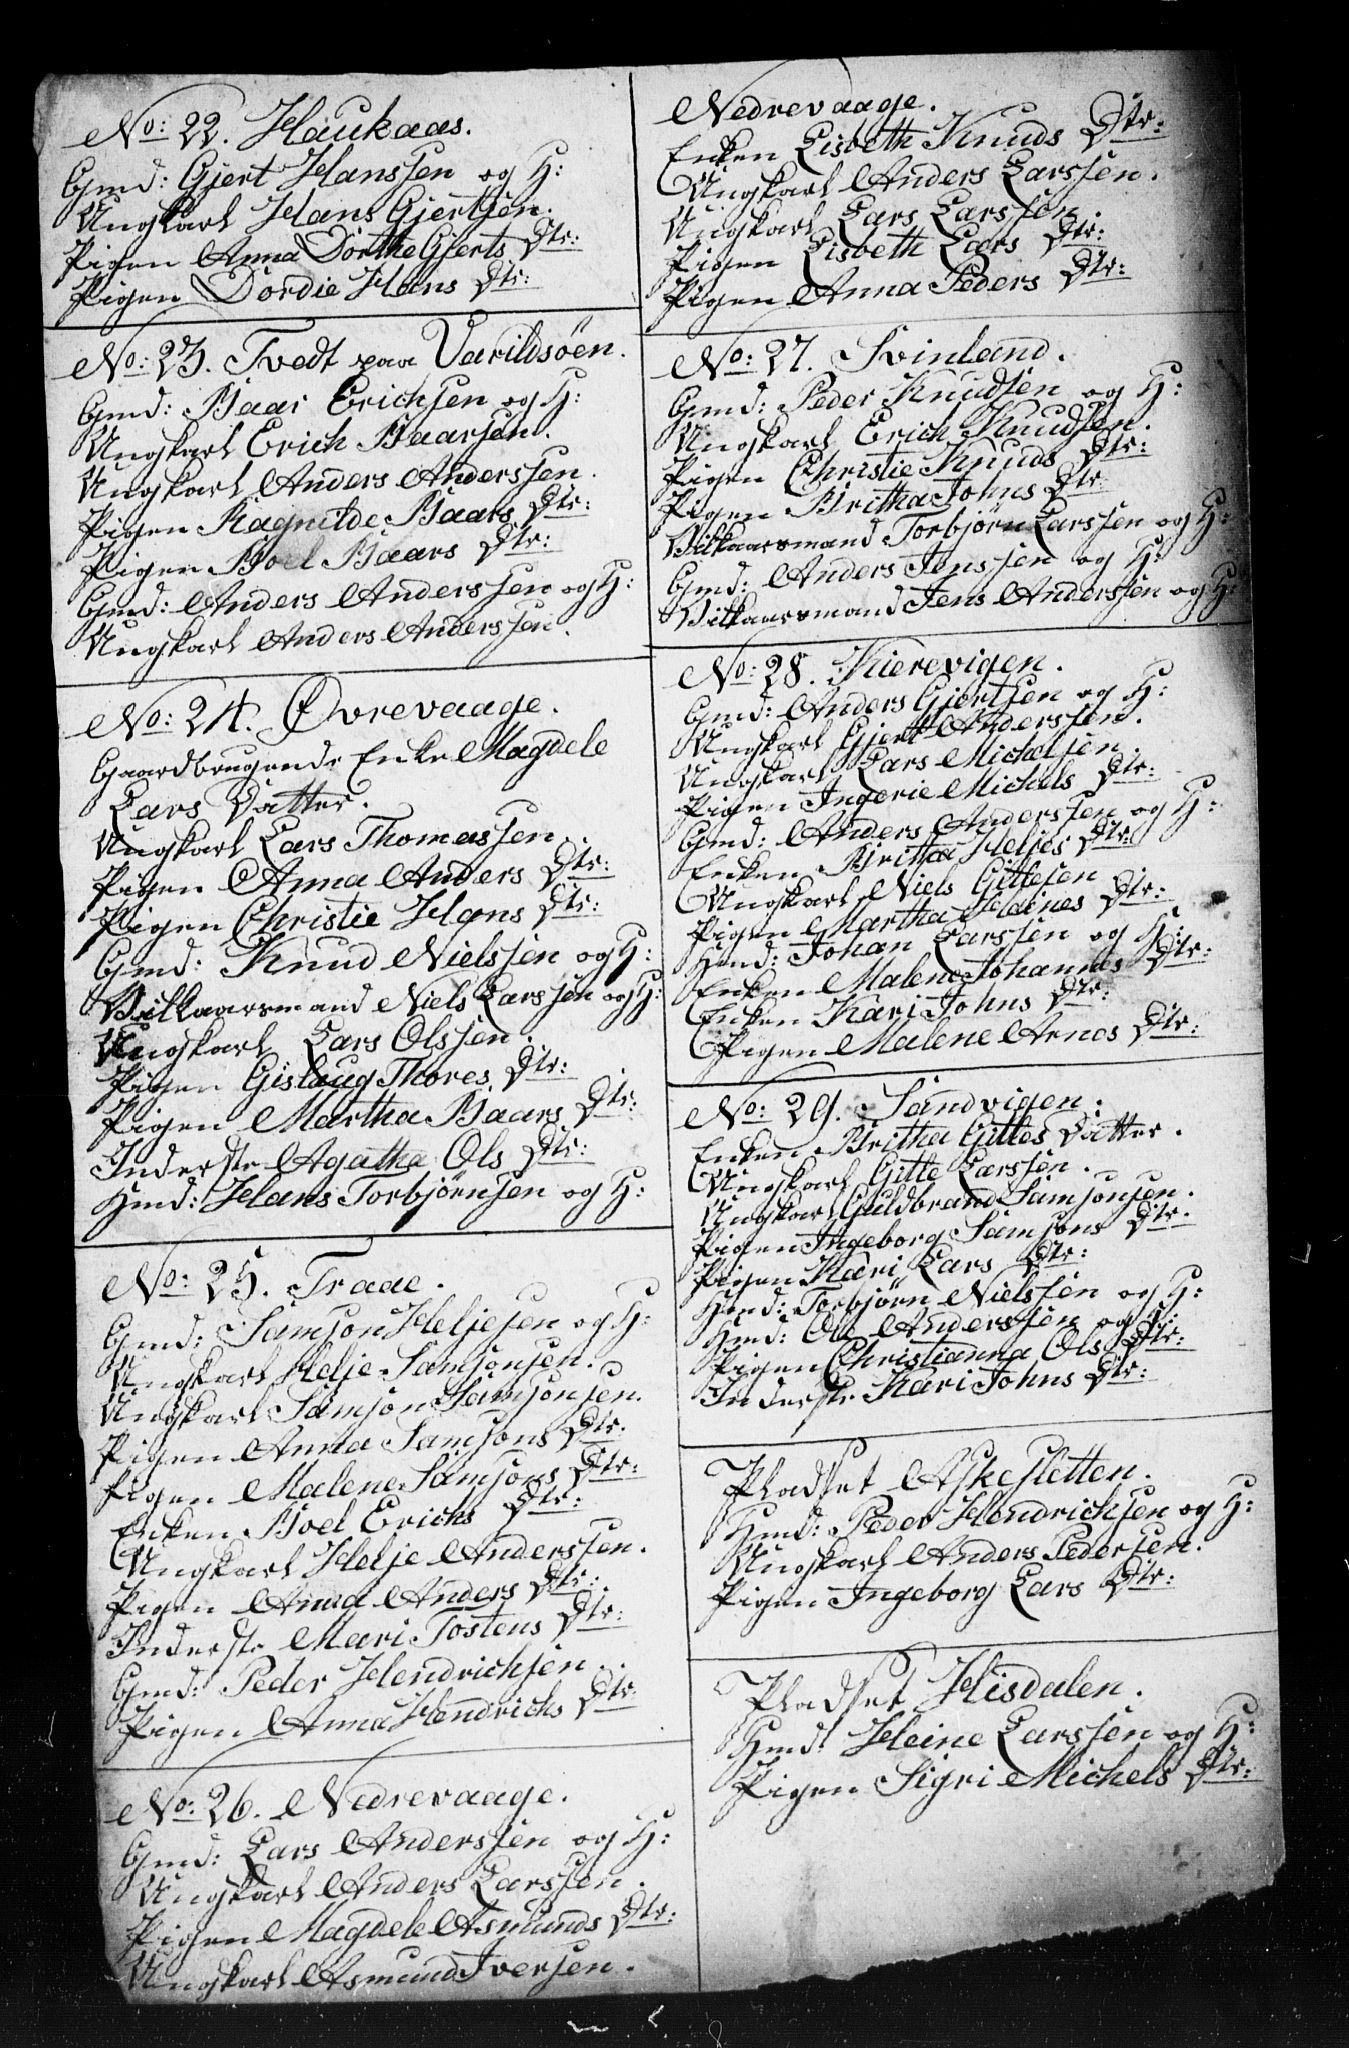 No: 22. Haukaas.
Gmd: Gjert Hanssen og H:
Ungkarl Hans Gjertsen.
Pigen Anna Dorthe Gjerts Dtr:
Pigen Dordie Hans Dtr:
No: 23. Tvedt paa Varildsöen.
Gmd: Baar Erichsen og H:
Ungkarl Erich Baarsen.
Ungkarl Anders Anderssen.
Pigen Ragnilde Baars Dtr:
Pigen Boel Baars Dtr:
Gmd: Anders Anderssen og H:
Ungkarl Anders Anderssen.
No: 24. Øvrevaage.
Gaardbrugende Enke Magdele
Lars Datter.
Ungkarl Lars Thomassen.
Pigen Anna Anders Dtr:
Pigen Christie Hans Dtr:
Gmd: Knud Nielssen og H:
Vilkaarsmand Niels Larssen og H:
Ungkarl Lars Olssen.
Pigen Gislaug Thores Dtr:
Pigen Martha Baars Dtr:
Inderste Agatha Ols Dtr:
Hmd: Hans Torbjörnsen og H:
No: 25. Traae.
Gmd: Samson Heljesen og H:
Ungkarl Helje Samsonsen.
Ungkarl Samson Samsonsen.
Pigen Anna Samsons Dtr:
Pigen Malene Samsons Dtr:
Enken Boel Erichs Dtr:
Ungkarl Helje Anderssen.
Pigen Anna Anders Dtr:
Inderste Mari Tostens Dtr:
Gmd: Peder Hendrichsen.
Pigen Anna Hendrichs Dtr:
No: 26. Nedrevaage.
Gmd: Lars Anderssen og H:
Ungkarl Anders Larssen.
Pigen Magdele Asmunds Dtr:
Ungkarl Asmund Iversen.
Nedrevaage.
Enken Lisbeth Knuds Dtr:
Ungkarl Anders Larssen.
Ungkarl Lars Larssen.
Pigen Lisbeth Lars Dtr:
Pigen Anna Peders Dtr:
No: 27. Svinland.
Gmd: Peder Knudsen og H:
Ungkarl Erich Knudsen.
Pigen Christie Knuds Dtr:
Pigen Britha Johns Dtr:
Vilkaarsmand Torbjörn Larssen og H:
Gmd: Anders Jenssen og H:
Vilkaarsmand Jens Anderssen og H:
No: 28. Kierevigen.
Gmd: Anders Gjertsen og H:
Ungkarl Gjert Anderssen.
Ungkarl Lars Michelsen.
Pigen Ingerie Michels Dtr:
Gmd: Anders Anderssen og H:
Enken Britha Heljes Dtr:
Ungkarl Niels Gittesen
Pigen Martha Heines Dtr:
Hmd: Johan Larssen og H:
Enken Malene Johannes Dtr:
Enken Kari Johns Dtr:
Pigen Malene Arnes Dtr:
No: 29. Sandvigen.
Enken Britha Gittes Datter.
Ungkarl Gitte Larssen.
Ungkarl Guldbrand Samsonsen.
Pigen Ingeborg Samsons Dtr:
Pigen Kari Lars Dtr:
Hmd: Torbjörn Nielssen og H:
Hmd: Ole Anderssen og H:
Pigen Christianna Ols Dtr:
Inderste Kari Johns Dtr:
Pladset Askesletten.
Hmd: Peder Hendrichsen og H:
Ungkarl Anders Pedersen.
Pigen Ingeborg Lars Dtr:
Pladset Hisdalen.
Hmd: Heine Larssen og H:
Pigen Sigri Michels Dtr: